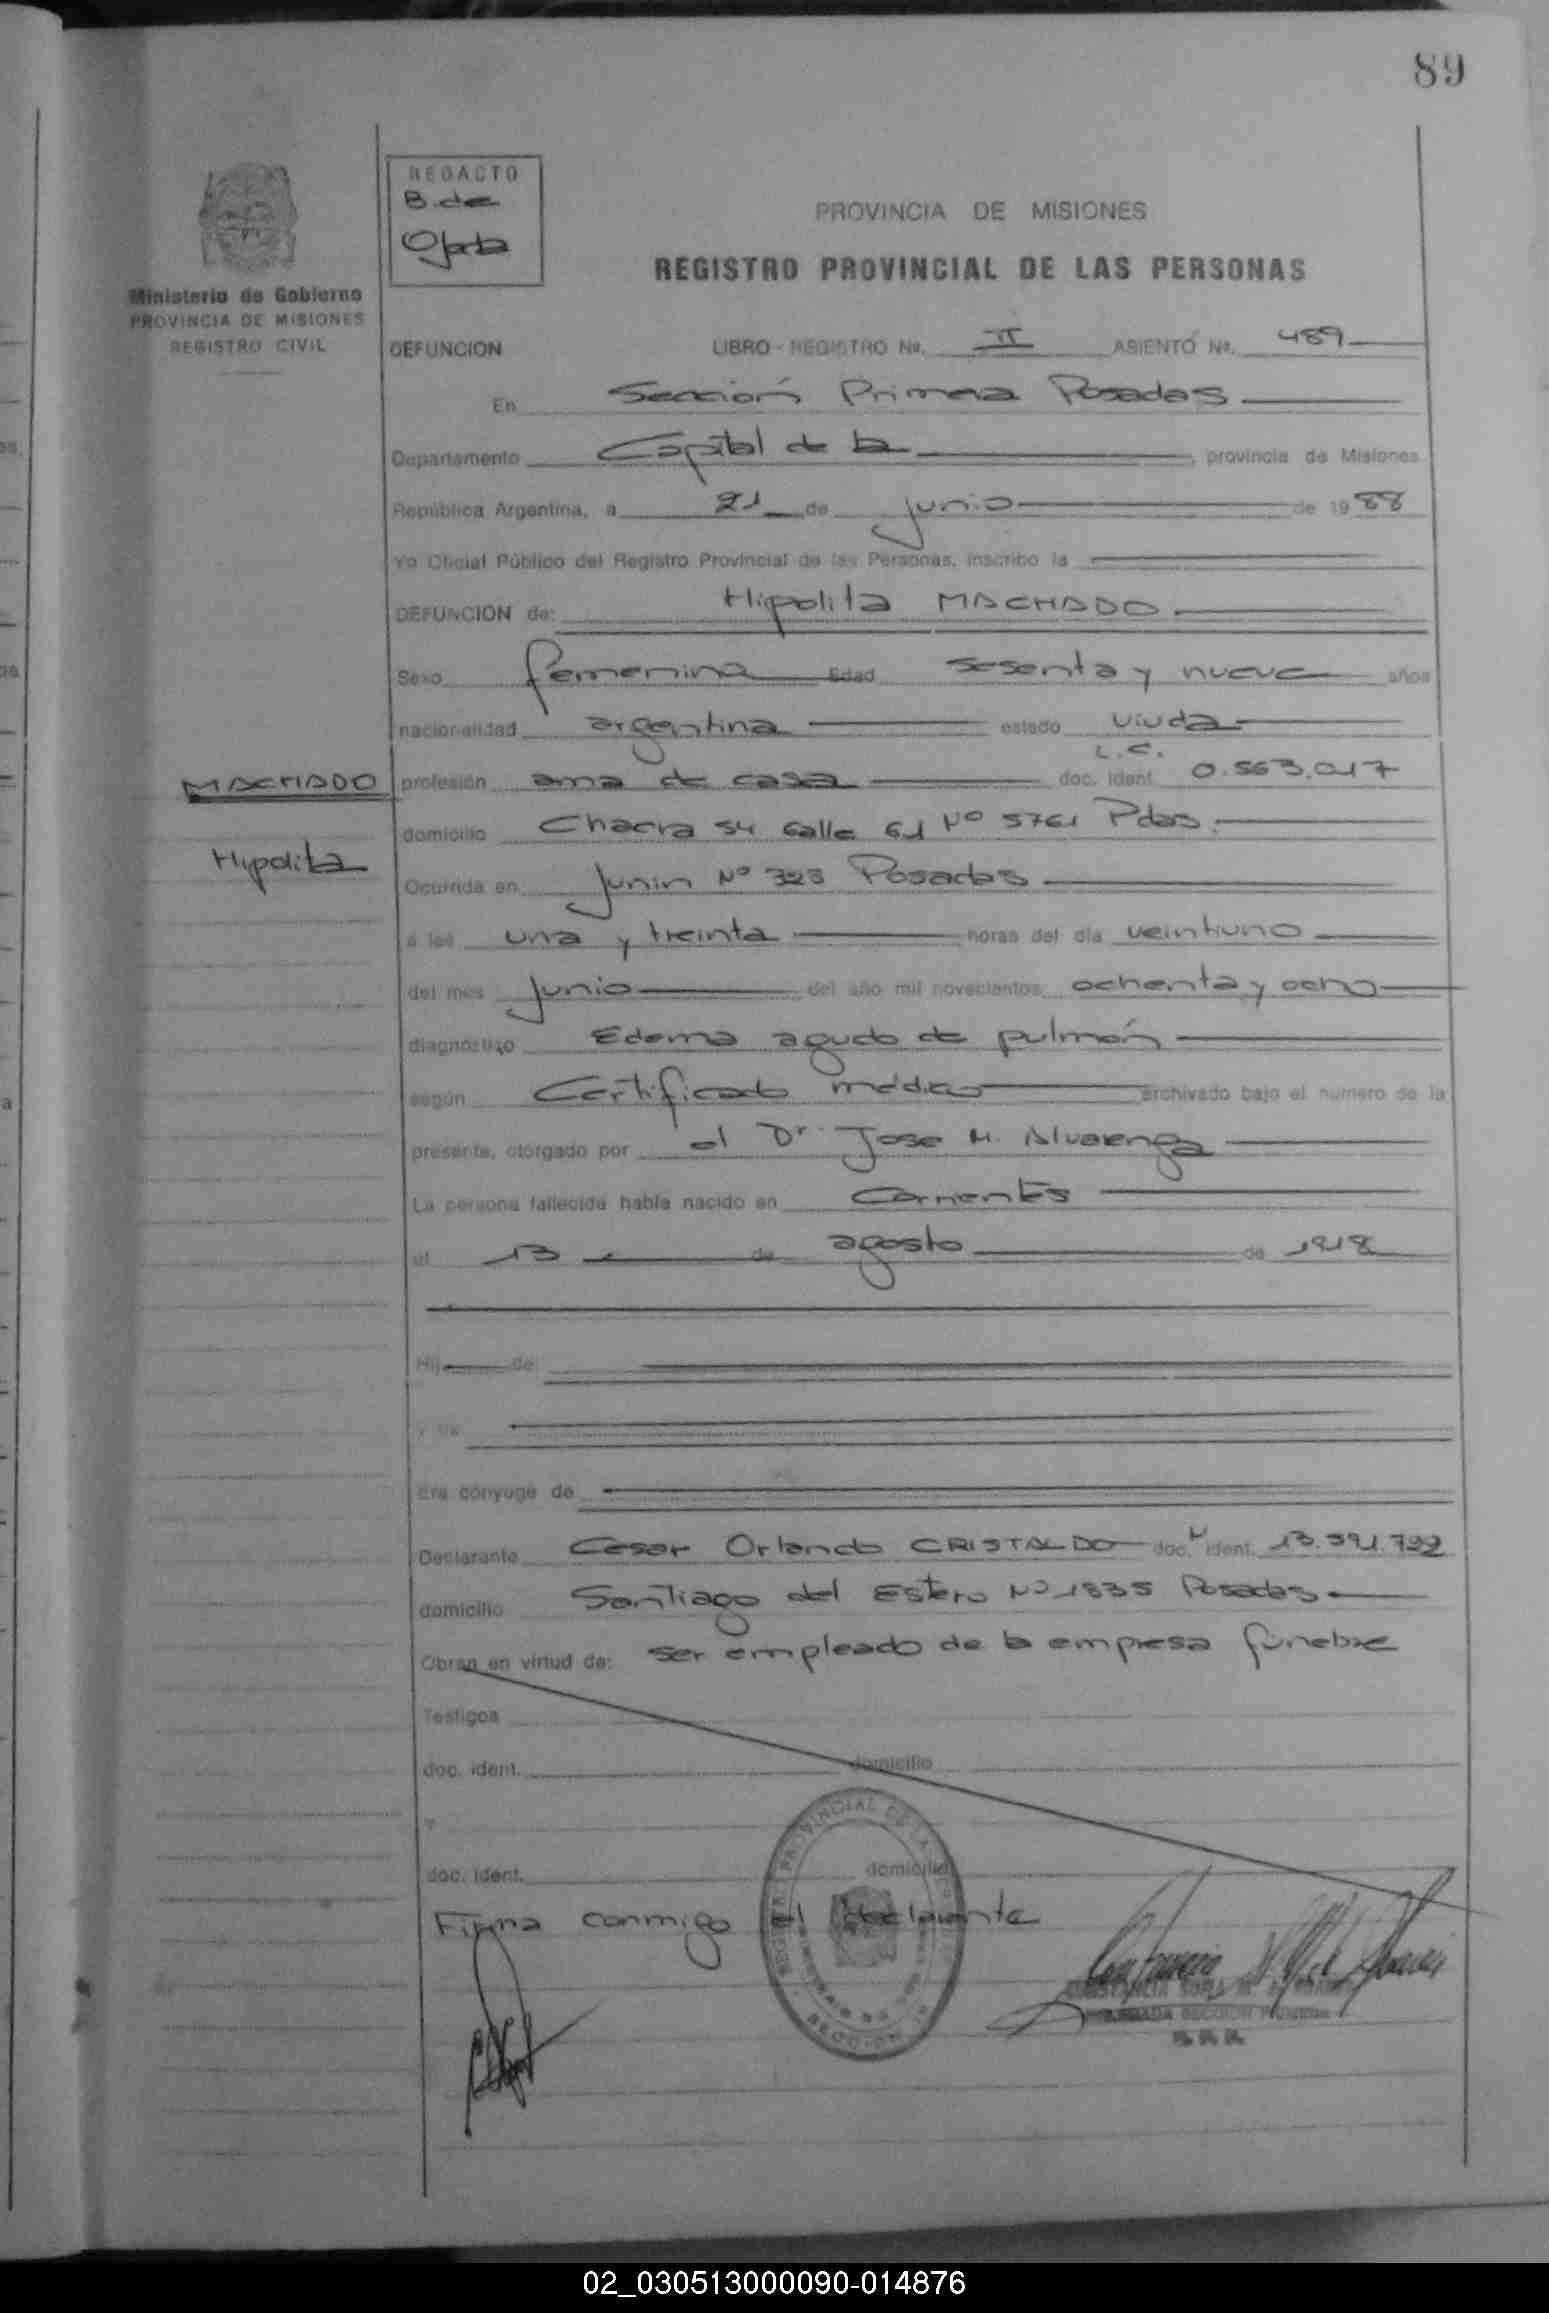 89
REDACTO
B. de
Ojeda
PROVINCIA DE MISIONES
REGISTRO PROVINCIAL DE LAS PERSONAS
Ministerio de Gobierno
PROVINCIA DE MISIONES
REGISTRO CIVIL
DEFUNCION LIBRO - REGISTRO No. II ASIENTO No. 489
En Sección Primera Posadas
Departamento Capital de la , provincia de Misiones
República Argentina, a 21 de junio de 1988
Yo Oficial Público del Registro Provincial de las Personas, inscribo la
DEFUNCION de: Hipolita MACHADO
Sexo femenina Edad sesenta y nueve años
nacionalidad argentina estado viuda
L.C.
MACHADO profesión ama de casa doc. ident. 0.563.017
domicilio Chacra 54 Calle 61 No 5761 Pdas.
Hipolita
Ocurrida en Junin No 323 Posadas
a las una y treinta horas del día veintiuno
del mes junio del año mil novecientos ochenta y ocho
diagnóstico Edema agudo de pulmón
según Certificado médico archivado bajo el numero de la
presente, otorgado por el Dr. Jose M. Alvarenga
La persona fallecida había nacido en Corrientes
el 13 de agosto de 1918
Hij de
y de
Era cónyuge de
Declarante Cesar Orlando CRISTALDO doc. ident. 13.391.792
domicilio Santiago del Estero No 1835 Posadas
Obran en virtud de: ser empleado de la empresa fúnebre
Testigos
doc. ident. domicilio
y
doc. ident. domicilio
Firma conmigo el declarante
REGISTRO PROVINCIAL DE LAS PERSONAS
SECCION 1a
CONSTANCIA
SECCION PRIMERA
02_030513000090-014876